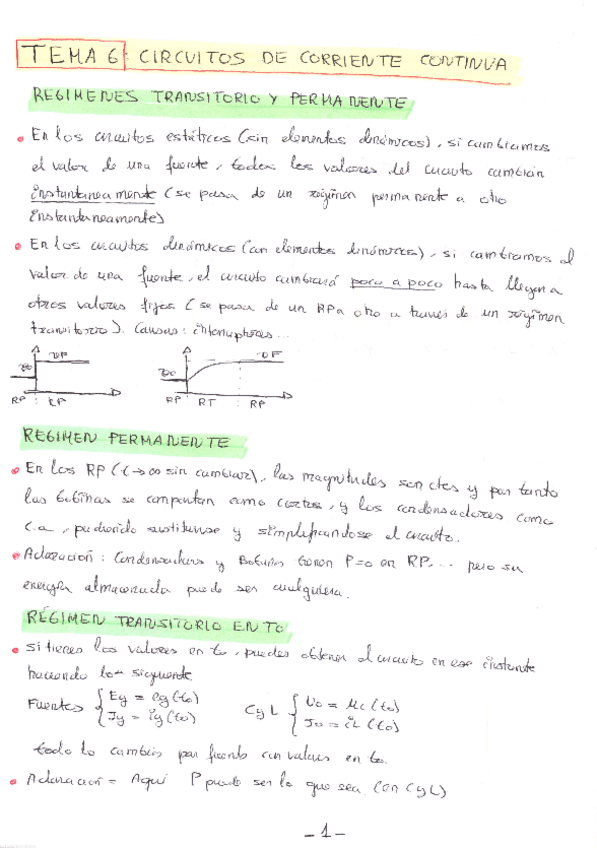 TEMA 6: CIRCUITOS DE CORRIENTE CONTINUA
REGIMENES TRANSITORIO Y PERMANENTE
En los circuitos estáticos (sin elementos dinámicos), si cambiamos
el valor de una fuente, todos los valores del circuito cambian
instantaneamente (se pasa de un régimen permanente a otro
instantaneamente)
En los circuitos dinámicos (con elementos dinámicos), si cambiamos el
valor de una fuente, el circuito cambiará poco a poco hasta llegar a
otros valores fijos (se pasa de un RP a otro a través de un régimen
transitorio). Causas: interruptores...
vo vF vo vF
RP : RP RP RT RP
REGIMEN PERMANENTE
En los RP (t→∞ sin cambiar), las magnitudes son ctes y por tanto
las bobinas se comportan como cortos, y los condensadores como
c.a, pudiendo sustituirse y simplificandose el circuito.
Aclaración: Condensadores y Bobinas tienen P=0 en RP... pero su
energía almacenada puede ser cualquiera.
RÉGIMEN TRANSITORIO EN TO
si tienes los valores en to, puedes obtener el circuito en ese instante
haciendo lo siguiente
Fuentes { Eg = eg(to) C y L { Uo = uc(to)
Jg = ig(to) Jo = iL(to)
todo lo cambias por fuente con valores en to.
Aclaración = Aquí P puede ser lo que sea (en C y L)
- 1 -